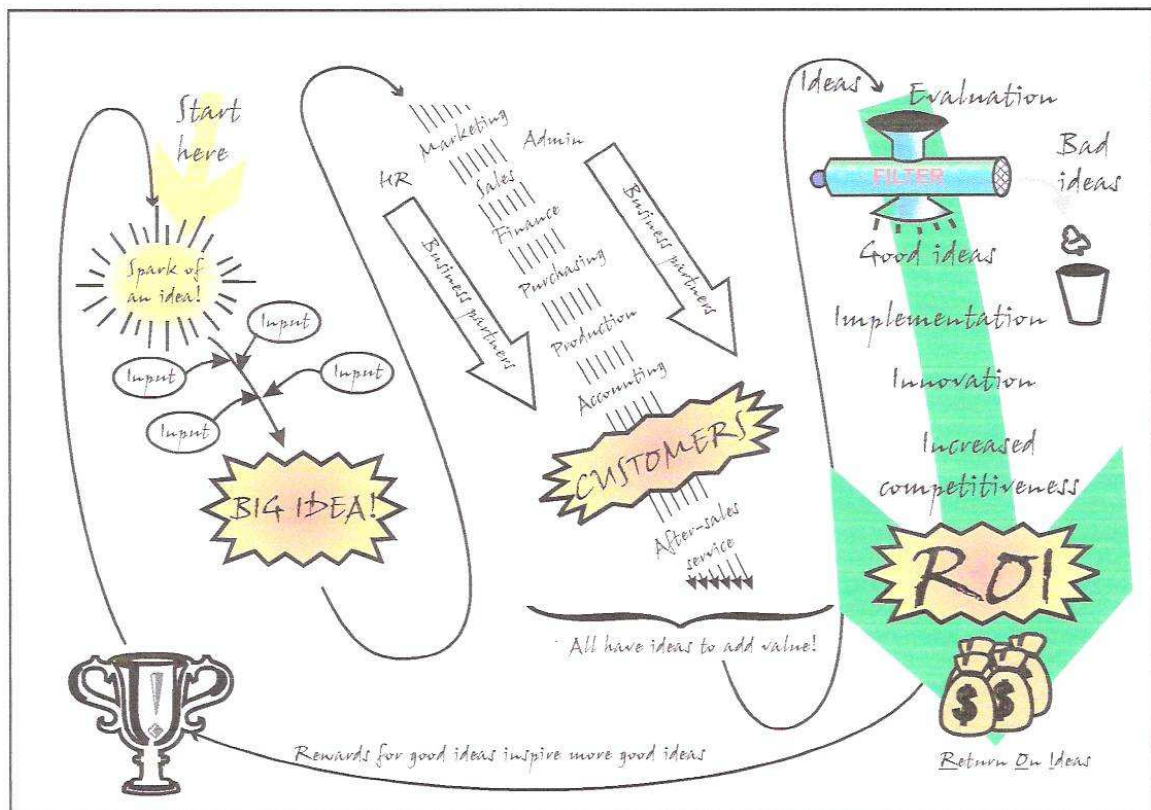 Start
here
Spark of
an idea!
Input
Input
Input
Input
BIG IDEA!
Marketing
Admin
HR
Sales
Finance
Purchasing
Production
Accounting
Business partners
Business partners
CUSTOMERS
After-sales
service
All have ideas to add value!
Ideas
Evaluation
FILTER
Bad
ideas
Good ideas
Implementation
Innovation
Increased
competitiveness
ROI
$ $
Return On Ideas
Rewards for good ideas inspire more good ideas